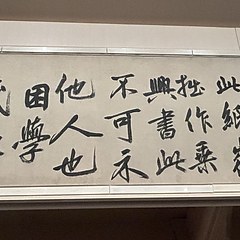 此紙
拙作乘
興書此
不可示
他人也
困學